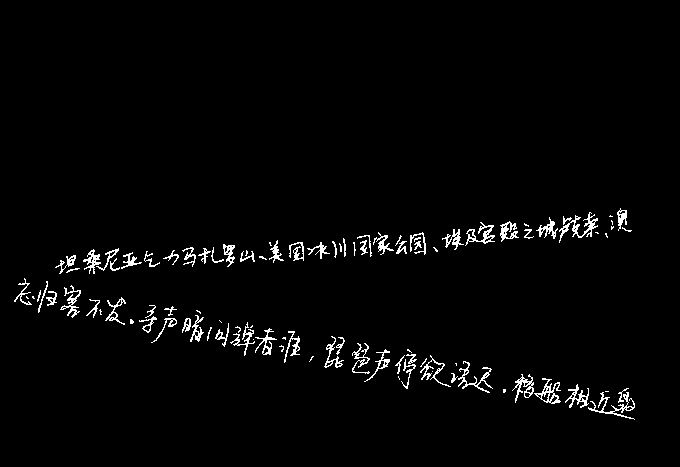 坦桑尼亚乞力马扎罗山、美国冰川国家公园、埃及宫殿之城卢克索、澳
忘归客不发。寻声暗问弹者谁，琵琶声停欲语迟。移船相近邀